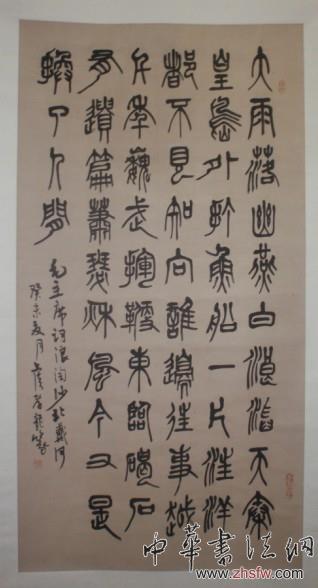 大雨落幽燕白浪滔天秦
皇島外打魚船一片汪洋
都不見知向誰邊往事越
千年魏武揮鞭東臨碣石
有遺篇蕭瑟秋風今又是
換了人間
毛主席詞浪淘沙北戴河
癸未夏月
中華書法網
www.zhsfw.com